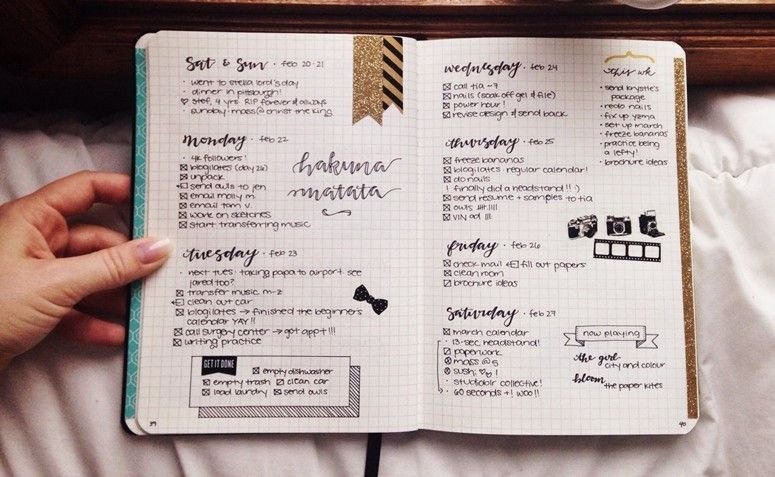 Sat & Sun • feb 20-21
• went to stella lord's day
• dinner in pittsburgh!
♡ stef, 9 yrs. RIP forever & always
• sunday-mass @ christ the king
monday • feb 22
• 4k followers!
☒ blogilates (day 26)
☒ unpack
send owls to jen
☒ email molly m.
☒ email tom v.
☒ work on sketches
☒ start transferring music
hakuna
matata
tuesday • feb 23
• next tues: taking papa to airport. see
jared too?
☒ transfer music m-z
clean out car
☒ blogilates → finished the beginners
calendar YAY!!
☒ call surgery center → got appt!!!
☒ writing practice
GET IT DONE
☒ empty dishwasher
☒ empty trash ☑ clean car
☒ load laundry ☒ send owls
39
wednesday • feb 24
☒ call tia ~7
☒ nails (soak off gel & file)
☒ power hour!
☒ revise design & send back
thursday • feb 25
☒ freeze bananas
☒ blogilates regular calendar!
☒ do nails
! finally did a headstand!! :)
☒ send resume + samples to tia
☒ owls
☒ VIN ad !!!
friday • feb 26
☒ check mail fill out papers
☒ clean room
☑ brochure ideas
Saturday • feb 27
☒ march calendar
• 13-sec headstand!
☑ paperwork
mass @ 5
sushi!
• studiolor collective!
• 60 seconds +! woo!!
this wk
• send krystle's
package
• redo nails
• fix up yzma
• set up march
• freeze bananas
• practice being
a lefty!
• brochure ideas
now playing
the girl-
city and colour
bloom-
the paper kites
40